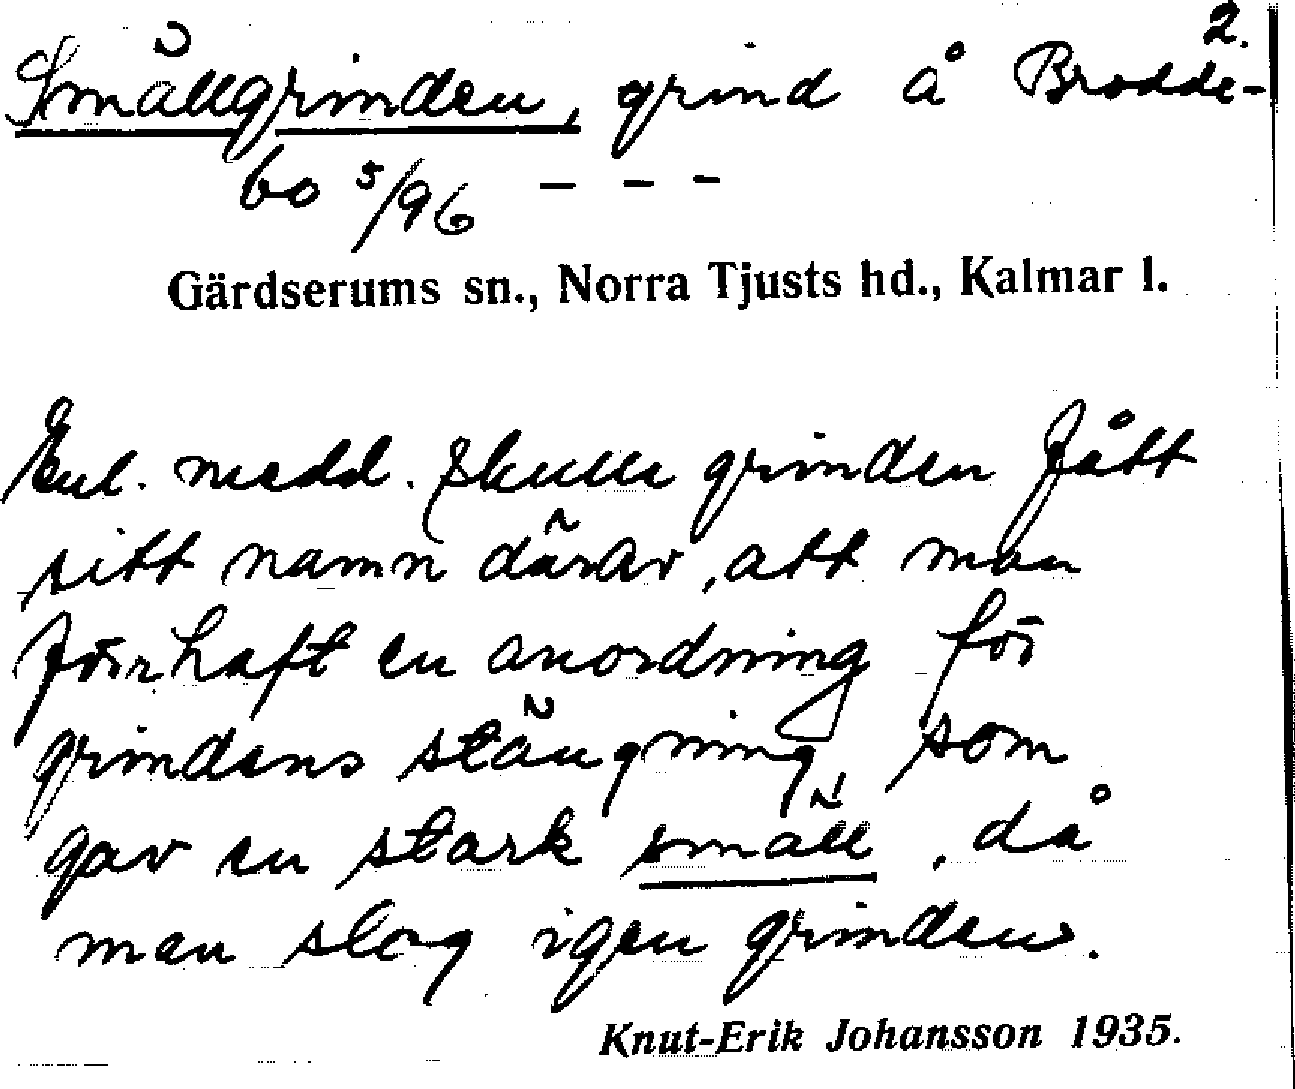 2.
Smällgrinden, grind å Brodde-
bo 5/96 – – –
Gärdserums sn., Norra Tjusts hd., Kalmar l.
Enl. medd. skulle grinden fått
sitt namn därav, att man
förr haft en anordning för
grindens stängning som
gav en stark smäll, då
man slog igen grinden.
Knut-Erik Johansson 1935.